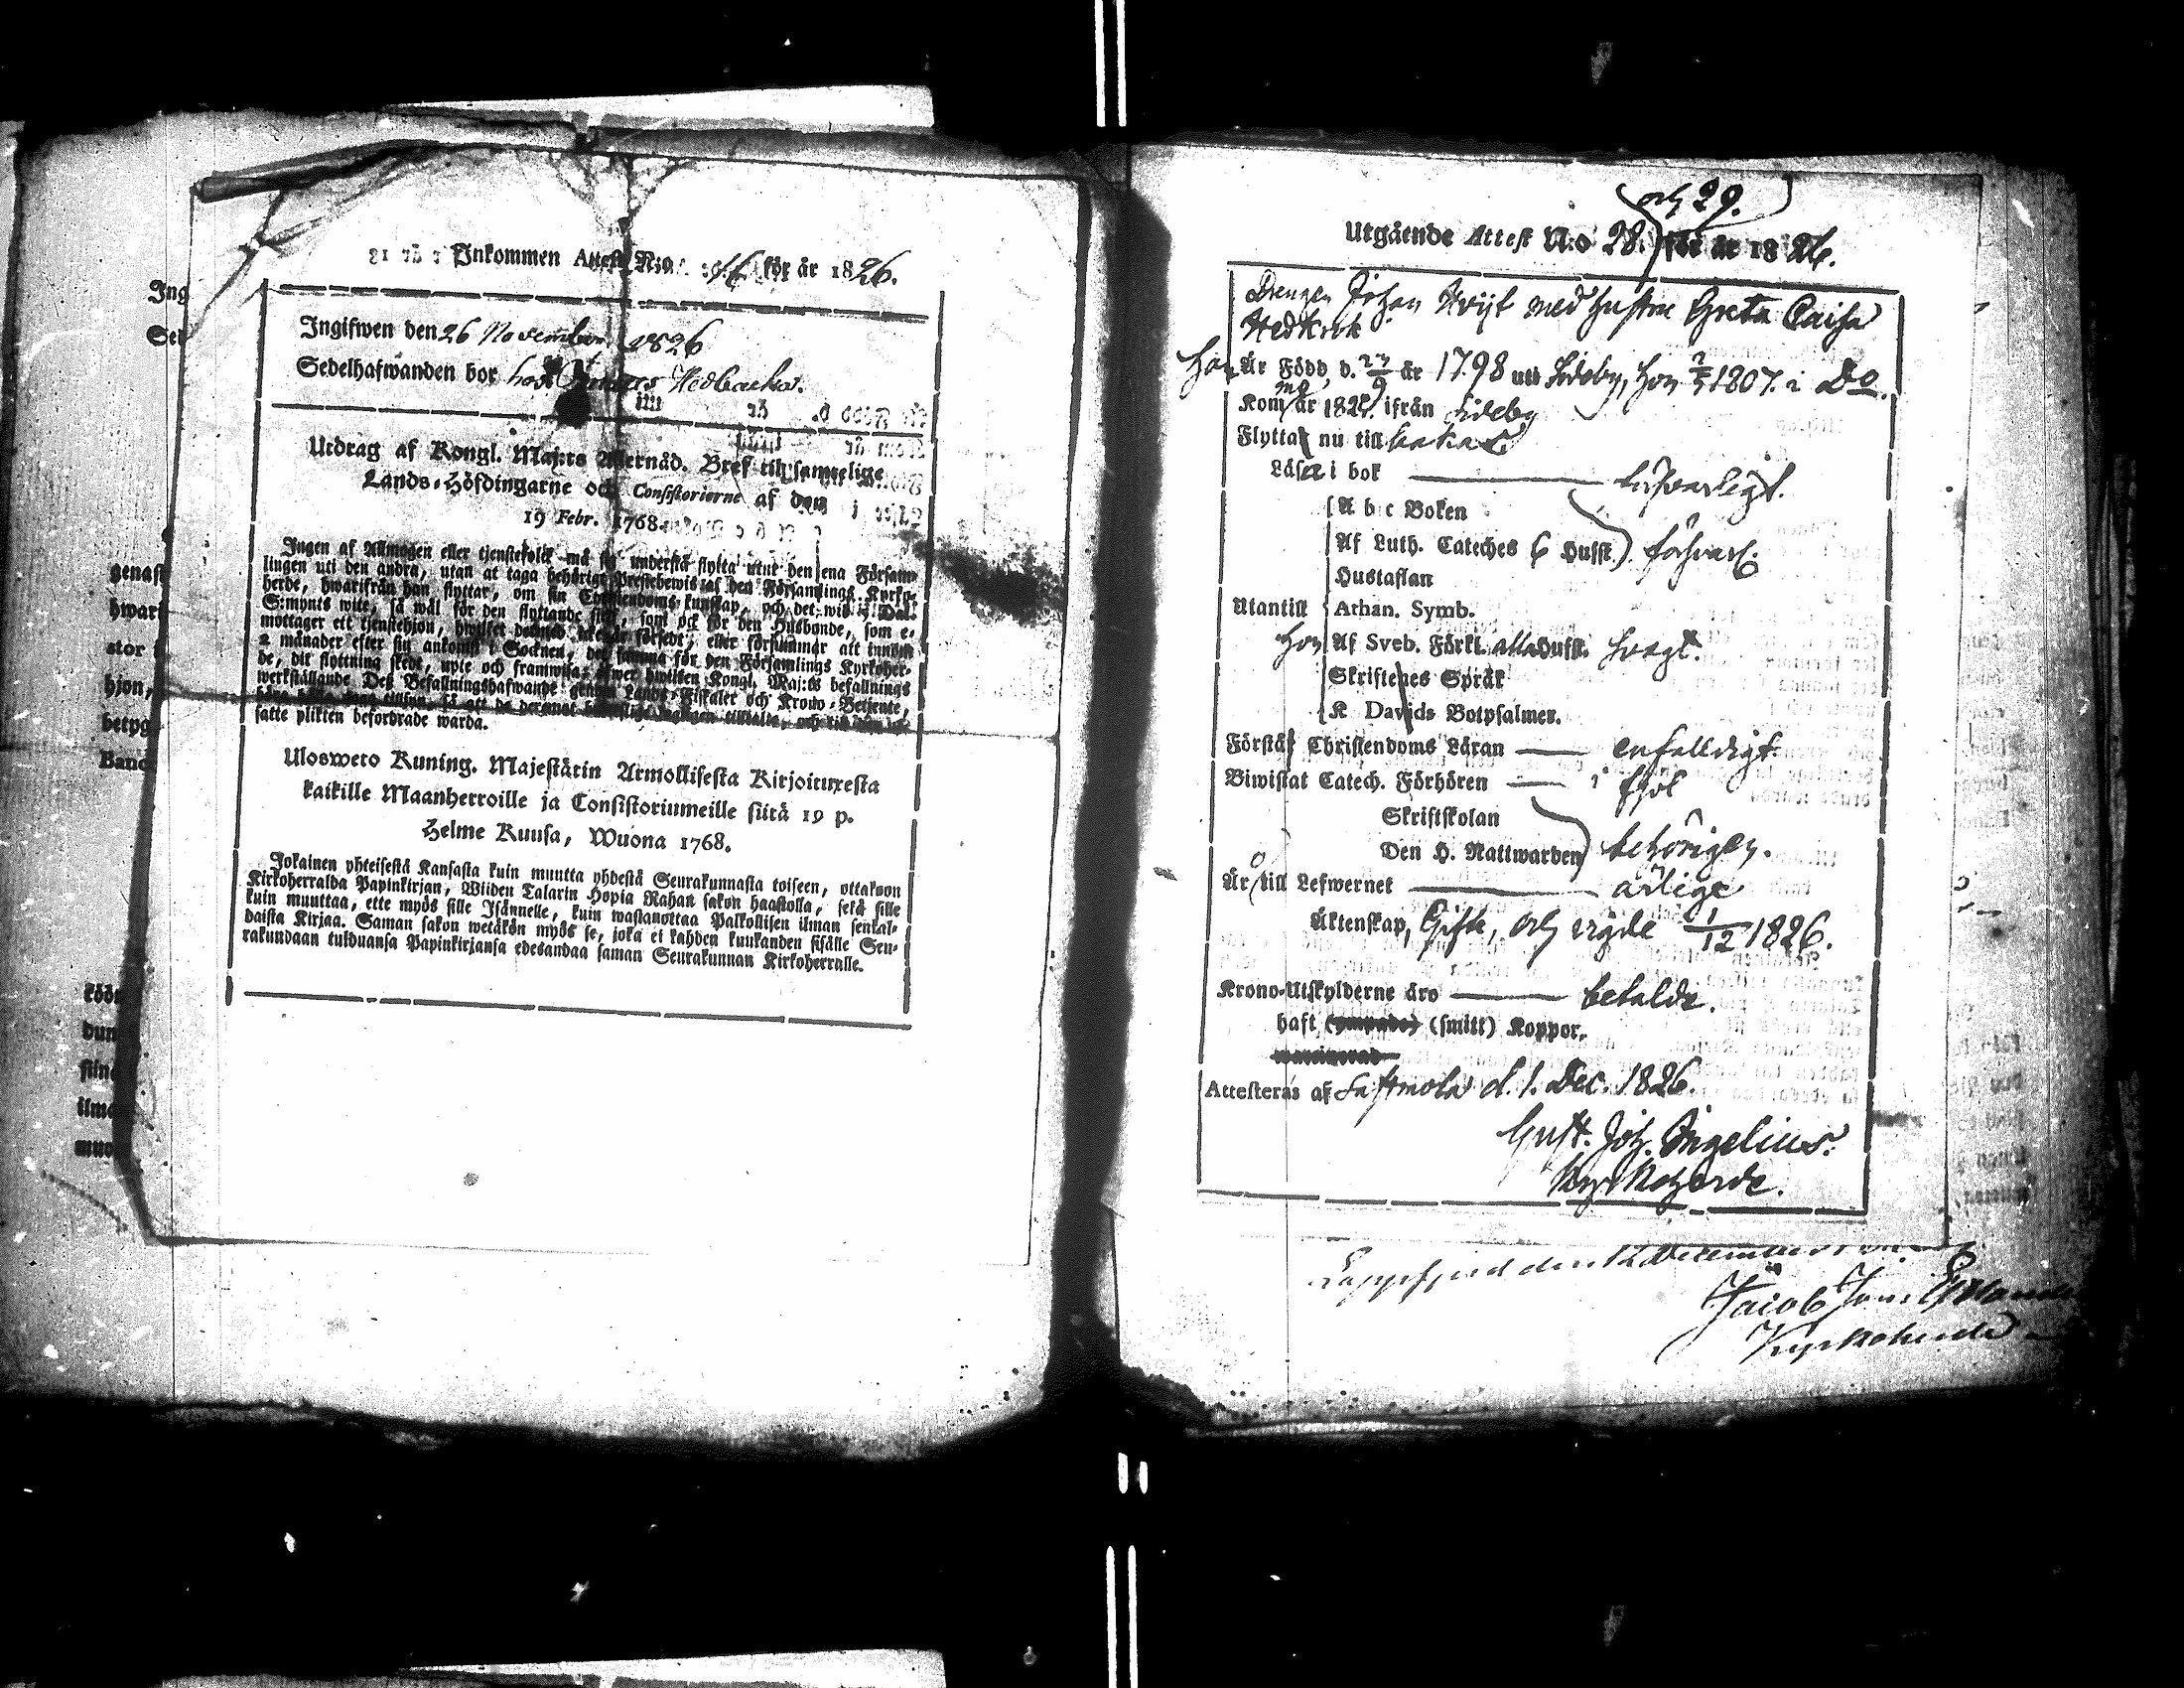 Inkommen Attest N:o 46 för år 1826.
Ingifwen den 26 November 1826
Sedelhafwanden bor hos Hedbacka.
Utdrag af Kongl. Maj:ts Allernåd. Bref till samtelige
Lands-Höfdingarne och Consistorierne af den
19 Febr. 1768.
Ingen af Allmogen eller tjenstefolck må sig understå flytta utur den ena Försam-
lingen uti den andra, utan at taga behörigt Prestebewis af den Församlings Kyrko-
herde, hwarifrån han flyttar, om sin Christendoms kunskap, och det wid 5 Dal.
S:mynts wite, så wäl för den flyttande sjelf, som ock för den Husbonde, som e-
mottager ett tjenstehjon, hwilket dermed icke är försedt, eller försummar att innom
2 månader efter sin ankomst i Socknen, det samma för den Församlings Kyrkoher-
de, dit flyttning skedt, upte och framwisa; öfwer hwilken Kongl. Maj:ts befallnings
werkställande Deß Befallningshafwande genom Lands-Fiskaler och Krono-Betjente,
satte plikten befordrade warda.
Uloswero Kuning. Majestärin Armollisesta Kirjoituxesta
kaikille Maanherroille ja Consistoriumeille siitä 19 p.
Helme Kuusa, Wuona 1768.
Jokainen yhteisestä Kansasta kuin muutta yhdestä Seurakunnasta toiseen, ottakoon
Kirkoherralda Papinkirjan, Wiiden Talarin Hopia Rahan sakon haastolla, sekä sille
kuin muuttaa, ette myös sille Isännelle, kuin wastanottaa Palkollisen ilman senkal-
daista Kirjaa. Saman sakon wetäkön myös se, joka ei kahden kuukanden sisälle Seu-
rakundaan tulduansa Papinkirjansa edesandaa saman Seurakunnan Kirkoherralle.
och 29.
Utgående Attest N:o 28. för år 1826.
Drengen Johan Kvist med hustru Greta Caisa
Hedkrok
Han Är Född d. 27/9 år 1798 uti Sideby, hon 1807. i Do.
Kommo år 182 ifrån Sideby
Flytta nu till baka
Läsa i bok försvarligt.
A b c Boken
Af Luth. Cateches 6 Hufst. försvarl.
Hustaflan
Utantill Athan. Symb.
hon Af Sveb. Förkl. alla Hufst. svagt.
Skriftenes Språk
K Davids Botpsalmer.
Förstå Christendoms Läran enfaldigt.
Biwistat Catech. Förhören i fjol
Skriftskolan
Den H. Nattwarden behörigen.
Äro till Lefwernet ärlige
Äktenskap, Gifte, och vigde 1/12 1826.
Krono-Utskylderne äro betalde.
haft (smitt) Koppor.
Attesteras af Sastmola d. 1. Dec. 1826.
Gust. Joh. Ingelius.
Kyrkoherde.
Lappfjerd den 12 December
Jacob Jon.
Kyrkoherde